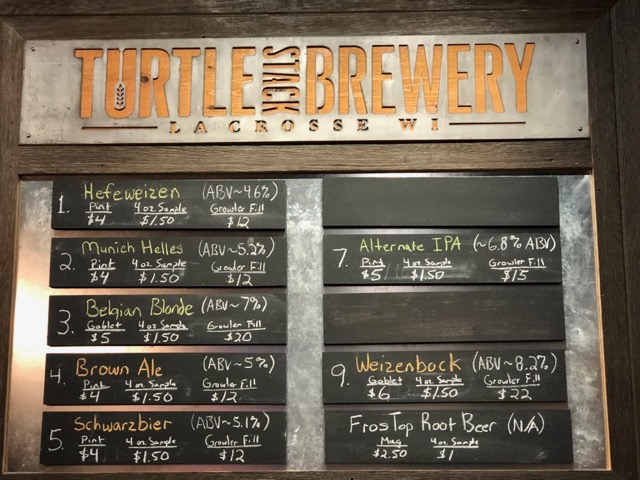 TURTLE STACK BREWERY
LA CROSSE WI
1. Hefeweizen (ABV~4.6%)
Pint 4 oz. Sample Growler Fill
$4 $1.50 $12
2. Munich Helles (ABV~5.2%)
Pint 4 oz. Sample Growler Fill
$4 $1.50 $12
3. Belgian Blonde (ABV~7%)
Goblet 4 oz Sample Growler Fill
$5 $1.50 $20
4. Brown Ale (ABV~5%)
Pint 4 oz. Sample Growler Fill
$4 $1.50 $12
5. Schwarzbier (ABV~5.1%)
Pint 4 oz. Sample Growler Fill
$4 $1.50 $12
7. Alternate IPA (~6.8% ABV)
Pint 4 oz. Sample Growler Fill
$5 $1.50 $15
9. Weizenbock (ABV~8.2%)
Goblet 4 oz. Sample Growler Fill
$6 $1.50 $22
Fros Top Root Beer (N/A)
Mug 4 oz. Sample
$2.50 $1